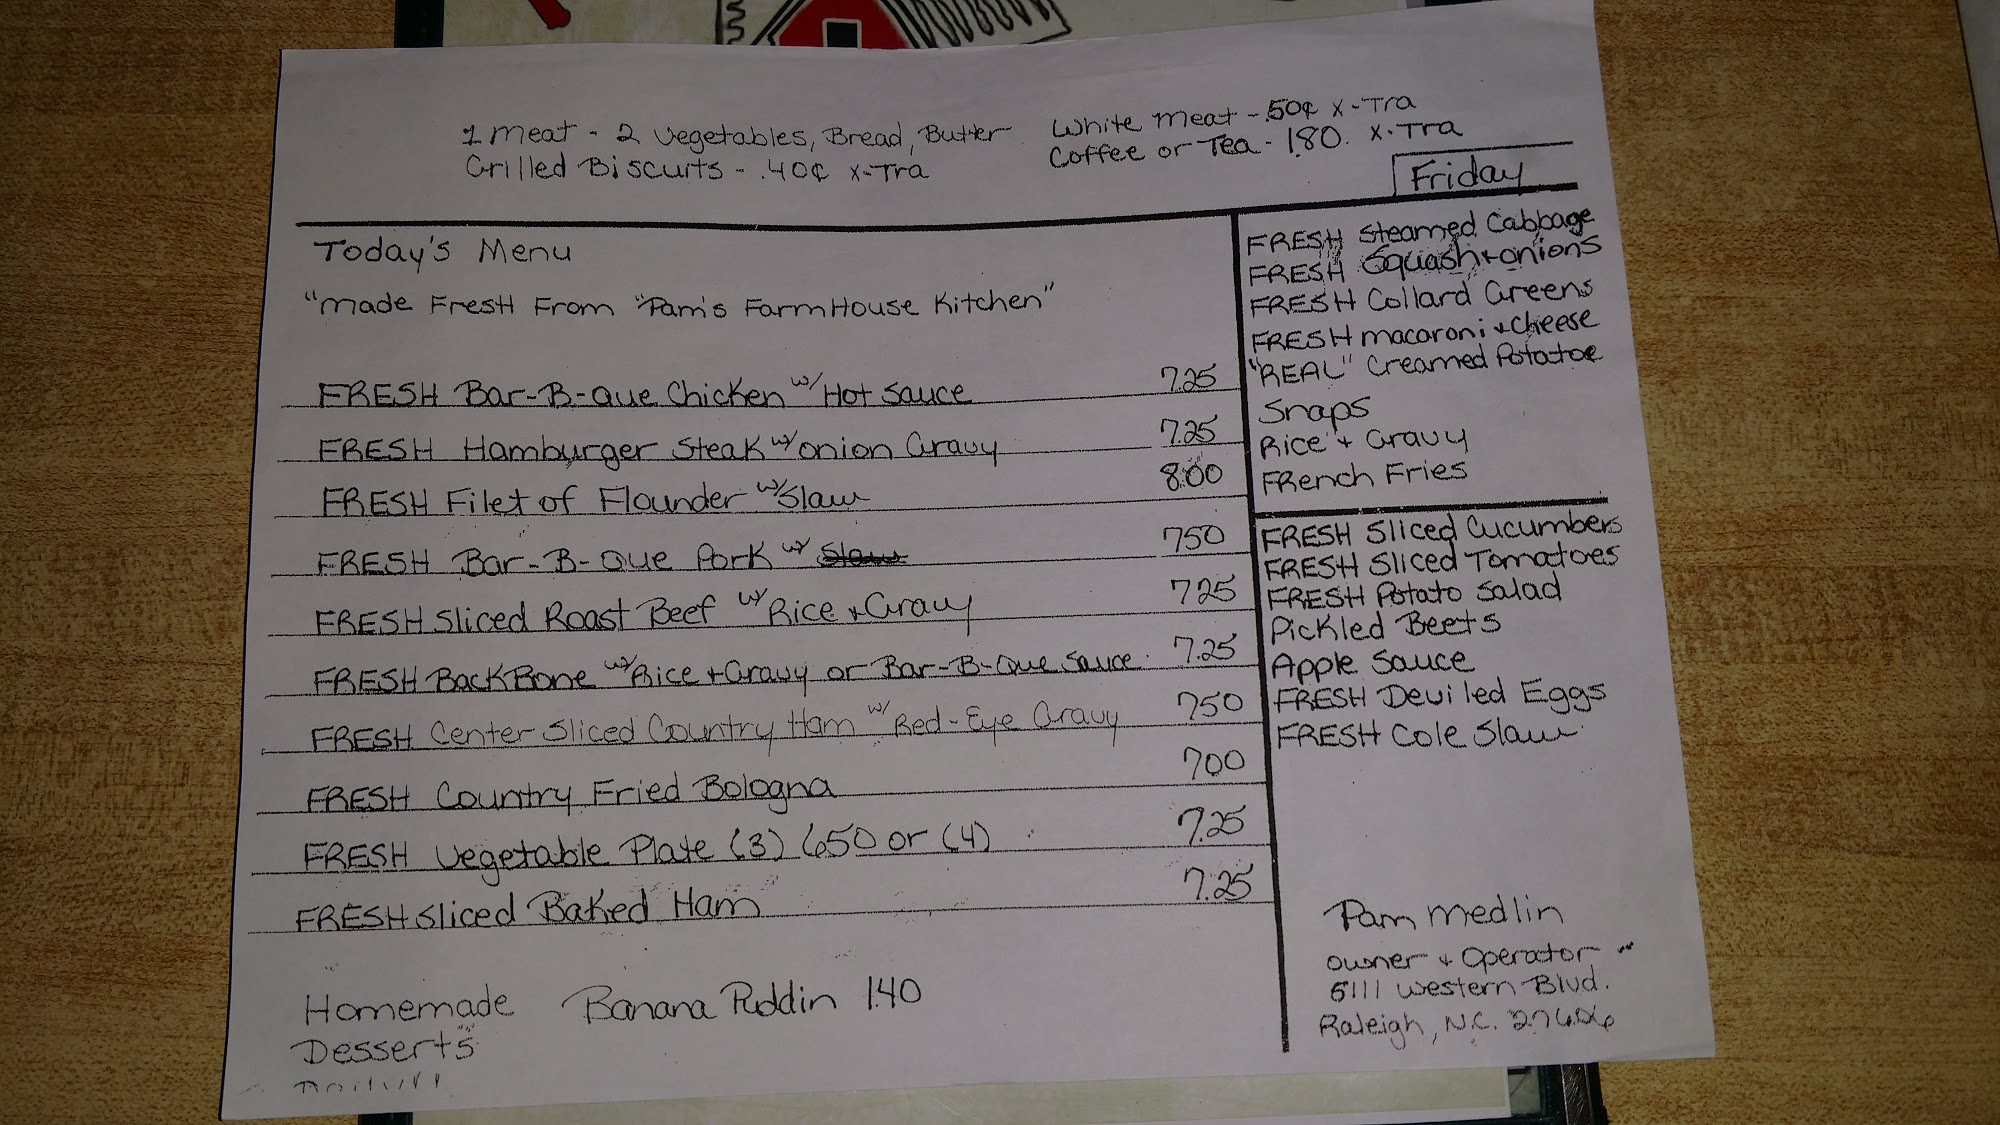 1 Meat - 2 Vegetables, Bread, Butter
Grilled Biscuits - .40¢ X-Tra
White Meat - .50¢ X-Tra
Coffee or Tea - 1.80. X-Tra
Friday
Today's Menu
"Made Fresh From "Pam's FarmHouse Kitchen"
FRESH Bar-B-Que Chicken w/ Hot Sauce 7.25
FRESH Hamburger Steak w/ onion Gravy 7.25
FRESH Filet of Flounder w/ Slaw 8.00
FRESH Bar-B-Que Pork w/ Slaw 750
FRESH Sliced Roast Beef w/ Rice + Gravy 725
FRESH BackBone w/ Rice + Gravy or Bar-B-Que Sauce 7.25
FRESH Center Sliced Country Ham w/ Red-Eye Gravy 750
FRESH Country Fried Bologna 700
FRESH Vegetable Plate (3) 650 or (4) 7.25
FRESH Sliced Baked Ham 7.25
Homemade Banana Puddin 1.40
Desserts
FRESH Steamed Cabbage
FRESH Squash + onions
FRESH Collard Greens
FRESH macaroni + cheese
"REAL" Creamed Potatoe
Snaps
Rice + Gravy
French Fries
FRESH Sliced Cucumbers
FRESH Sliced Tomatoes
FRESH Potato Salad
Pickled Beets
Apple Sauce
FRESH Deviled Eggs
FRESH Cole Slaw
Pam Medlin
owner + Operator
5111 Western Blvd.
Raleigh, N.C. 27606